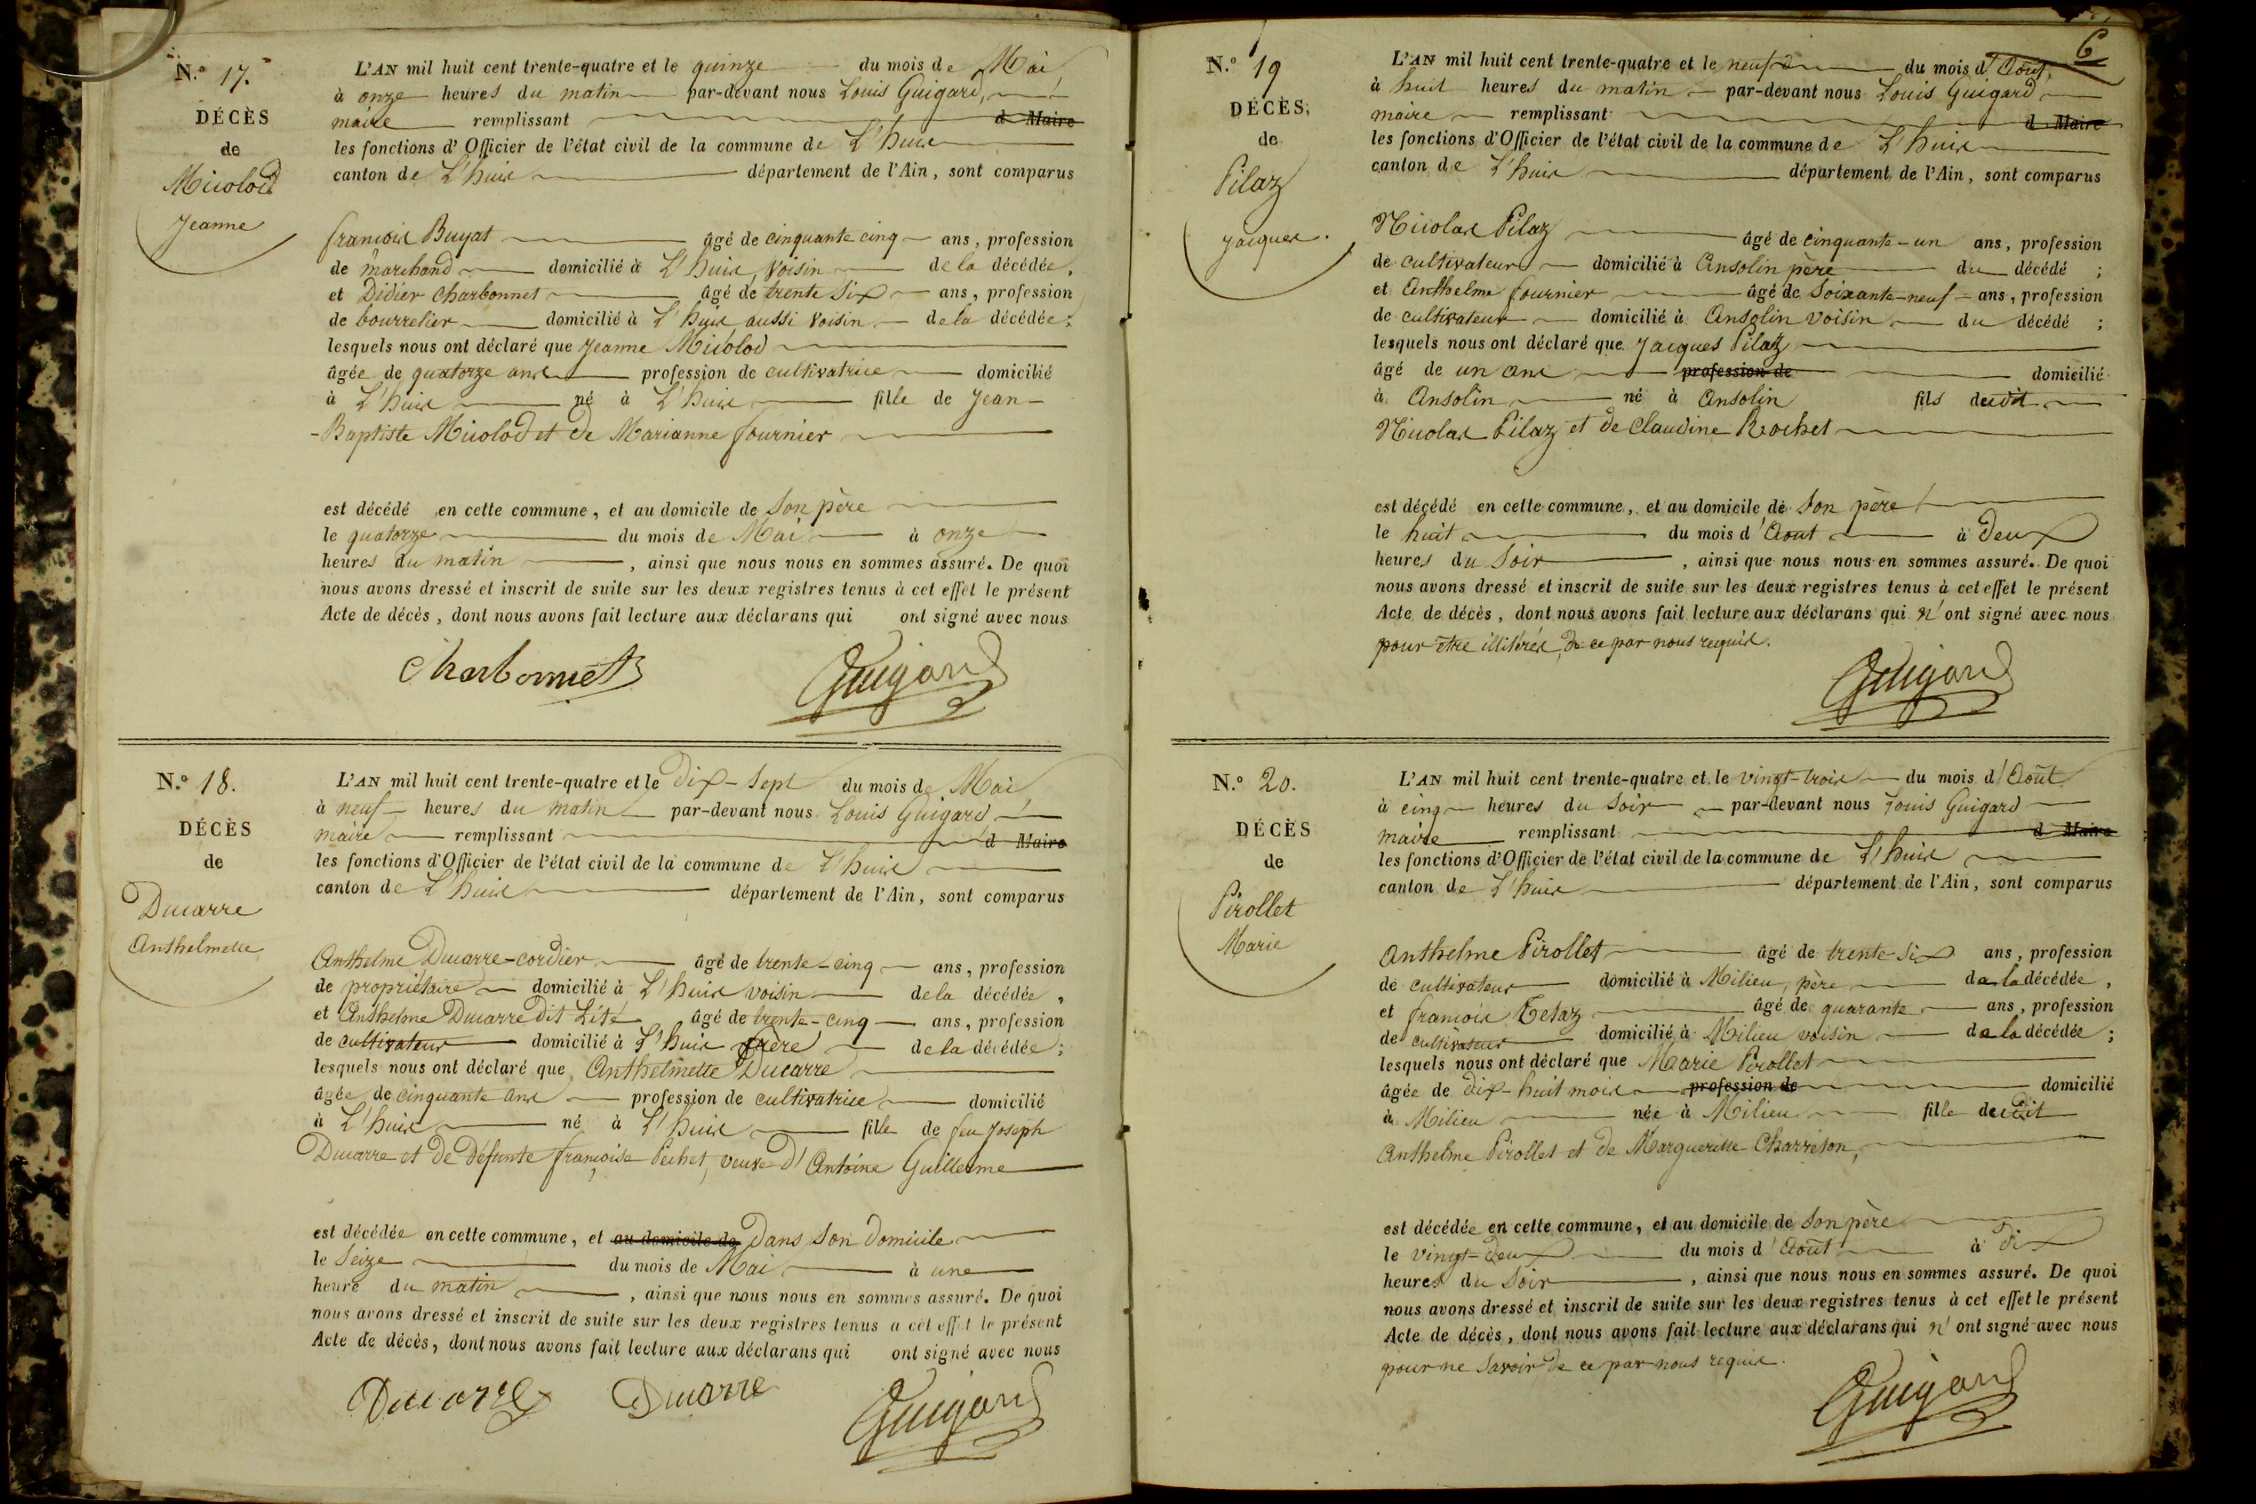 N.° 17.
DÉCÈS
de
Micolod
Jeanne
L'AN mil huit cent trente-quatre et le quinze du mois de Mai
à onze heures du matin par-devant nous Louis Guigard,
maire remplissant d Maire
les fonctions d'Officier de l'état civil de la commune de L'huis
canton de L'huis département de l'Ain, sont comparus
françois Buyat âgé de cinquante cinq ans, profession
de marchand domicilié à L'huis, voisin de la décédée,
et Didier Charbonnet âgé de trente six ans, profession
de bourrelier domicilié à L'huis aussi voisin de la décédée;
lesquels nous ont déclaré que Jeanne Micolod
âgée de quatorze ans profession de cultivatrice domicilié
à L'huis né à L'huis fille de Jean-
-Baptiste Micolod et de Marianne fournier
est décédé en cette commune, et au domicile de Son père
le quatorze du mois de Mai à onze
heures du matin, ainsi que nous nous en sommes assuré. De quoi
nous avons dressé et inscrit de suite sur les deux registres tenus à cet effet le présent
Acte de décès, dont nous avons fait lecture aux déclarans qui ont signé avec nous
Charbonnet Guigard
N.° 18.
DÉCÈS
de
Ducarre
Anthelmette
L'AN mil huit cent trente-quatre et le dix-sept du mois de Mai
à neuf heures du matin par-devant nous Louis Guigard
maire remplissant d Maire
les fonctions d'Officier de l'état civil de la commune de L'huis
canton de L'huis département de l'Ain, sont comparus
Anthelme Ducarre-cordier âgé de trente-cinq ans, profession
de propriétaire domicilié à L'huis voisin de la décédée,
et Anthelme Ducarre dit Lité âgé de trente-cinq ans, profession
de cultivateur domicilié à L'huis frère de la décédée;
lesquels nous ont déclaré que Anthelmette Ducarre
âgée de cinquante ans profession de cultivatrice domicilié
à L'huis né à L'huis fille de feu Joseph
Ducarre et de défunte françoise Pechet, veuve d'Antoine Guillerme
est décédée en cette commune, et au domicile de dans Son domicile
le Seize du mois de Mai à une
heure du matin, ainsi que nous nous en sommes assuré. De quoi
nous avons dressé et inscrit de suite sur les deux registres tenus à cet effet le présent
Acte de décès, dont nous avons fait lecture aux déclarans qui ont signé avec nous
Ducarre Ducarre Guigard
6
N.° 19
DÉCÈS,
de
Pilaz
Jacques.
L'AN mil huit cent trente-quatre et le neuf du mois d'Août,
à huit heures du matin par-devant nous Louis Guigard
maire remplissant d Maire
les fonctions d'Officier de l'état civil de la commune de L'huis
canton de L'huis département de l'Ain, sont comparus
Nicolas Pilaz âgé de cinquante-un ans, profession
de cultivateur domicilié à Ansolin père du décédé;
et Anthelme fournier âgé de Soixante-neuf ans, profession
de cultivateur domicilié à Ansolin voisin du décédé;
lesquels nous ont déclaré que Jacques Pilaz
âgé de un ans profession de domicilié
à Ansolin né à Ansolin fils du dit
Nicolas Pilaz et de Claudine Rochet
est décédé en cette commune, et au domicile de Son père
le huit du mois d'Août à deux
heures du Soir, ainsi que nous nous en sommes assuré. De quoi
nous avons dressé et inscrit de suite sur les deux registres tenus à cet effet le présent
Acte de décès, dont nous avons fait lecture aux déclarans qui n'ont signé avec nous
pour être illitérés de ce par nous requis.
Guigard
N.° 20.
DÉCÈS
de
Pirollet
Marie
L'AN mil huit cent trente-quatre et le vingt-trois du mois d'Août
à cinq heures du Soir par-devant nous Louis Guigard
maire remplissant d Maire
les fonctions d'Officier de l'état civil de la commune de L'huis
canton de L'huis département de l'Ain, sont comparus
Anthelme Pirollet âgé de trente-six ans, profession
de cultivateur domicilié à Milieu, père de la décédée,
et françois Tetaz âgé de quarante ans, profession
de cultivateur domicilié à Milieu voisin de la décédée;
lesquels nous ont déclaré que Marie Pirollet
âgée de dix-huit mois profession de domicilié
à Milieu née à Milieu fille du dit
Anthelme Pirollet et de Marguerite Charreton,
est décédée en cette commune, et au domicile de Son père
le vingt-deux du mois d'Août à dix
heures du Soir, ainsi que nous nous en sommes assuré. De quoi
nous avons dressé et inscrit de suite sur les deux registres tenus à cet effet le présent
Acte de décès, dont nous avons fait lecture aux déclarans qui n'ont signé avec nous
pour ne Savoir de ce par nous requis.
Guigard